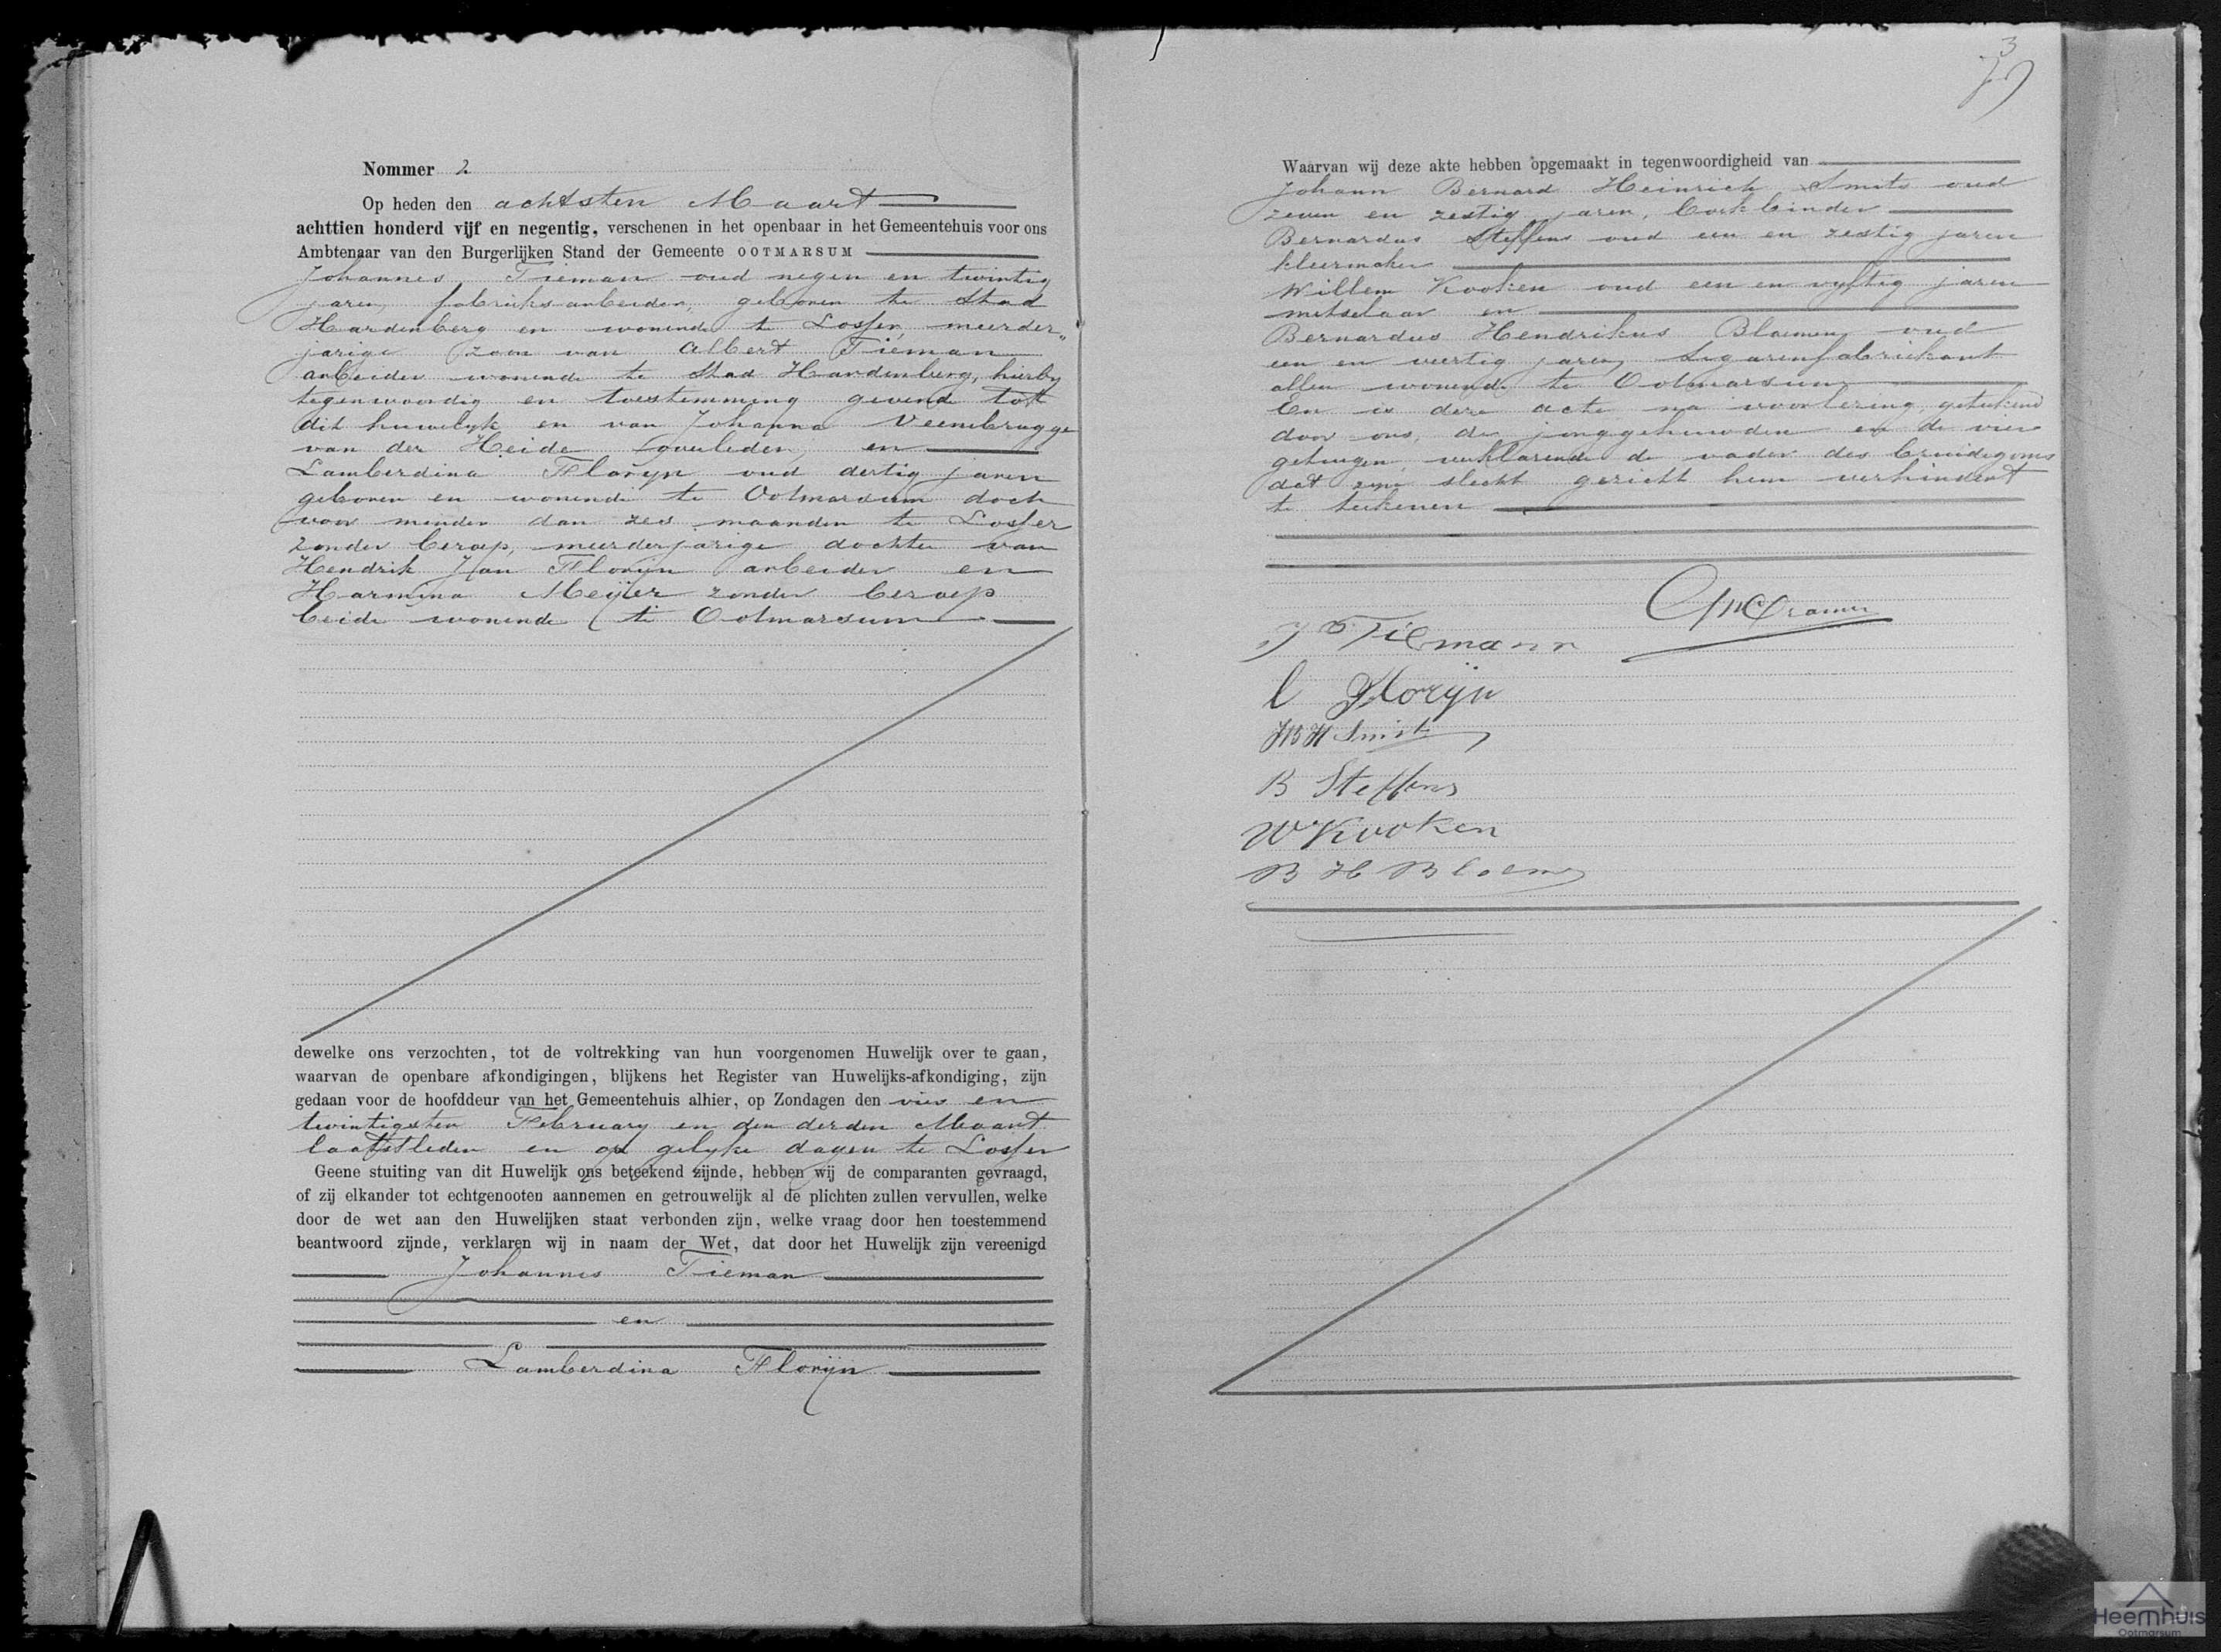 Nommer 2
Op heden den achtsten Maart
achttien honderd vijf en negentig, verschenen in het openbaar in het Gemeentehuis voor ons
Ambtenaar van den Burgerlijken Stand der Gemeente OOTMARSUM
Johannes Tieman oud negen en twintig
jaren, fabrieksarbeider, geboren te Stad
Hardenberg en wonende te Losser, meerder"
jarige zoon van Albert Tieman
arbeider wonende te Stad Hardenberg, hierby
tegenwoordig en toestemming gevende tot
dit huwelyk en van Johanna Veenebrugge
van der Heide overleden, en
Lamberdina Florijn oud dertig jaren
geboren en wonende te Ootmarsum doch
voor minder dan zes maanden te Losser
zonder beroep, meerderjarige dochter van
Hendrik Jan Florijn arbeider en
Harmina Meijer zonder beroep
beide wonende te Ootmarsum
dewelke ons verzochten, tot de voltrekking van hun voorgenomen Huwelijk over te gaan,
waarvan de openbare afkondigingen, blijkens het Register van Huwelijks-afkondiging, zijn
gedaan voor de hoofddeur van het Gemeentehuis alhier, op Zondagen den vier en
twintigsten February en den derden Maart
laatstleden en op gelyke dagen te Losser
Geene stuiting van dit Huwelijk ons beteekend zijnde, hebben wij de comparanten gevraagd,
of zij elkander tot echtgenooten aannemen en getrouwelijk al de plichten zullen vervullen, welke
door de wet aan den Huwelijken staat verbonden zijn, welke vraag door hen toestemmend
beantwoord zijnde, verklaren wij in naam der Wet, dat door het Huwelijk zijn vereenigd
Johannes Tieman
en
Lamberdina Florijn
3
Waarvan wij deze akte hebben opgemaakt in tegenwoordigheid van
Johann Bernard Heinrich Smits oud
zeven en zestig jaren, boekbinder
Bernardus Steffens oud een en zestig jaren
kleermaker
Willem Kooken oud een en vyftig jaren
metselaar en
Bernardus Hendrikus Bloemen oud
een en veertig jaren, sigarenfabriekant
allen wonende te Ootmarsum
En is deze acte na voorlezing, getekend
door ons, de jonggehuwden en de vier
getuigen, verklarende de vader des bruidegoms
dat zyn slecht gezicht hem verhindert
te teekenen
Cramer
J Tiemann
L Florijn
JBH Smits
B Steffens
W Kooken
B H Bloemen
Heemhuis
Ootmarsum